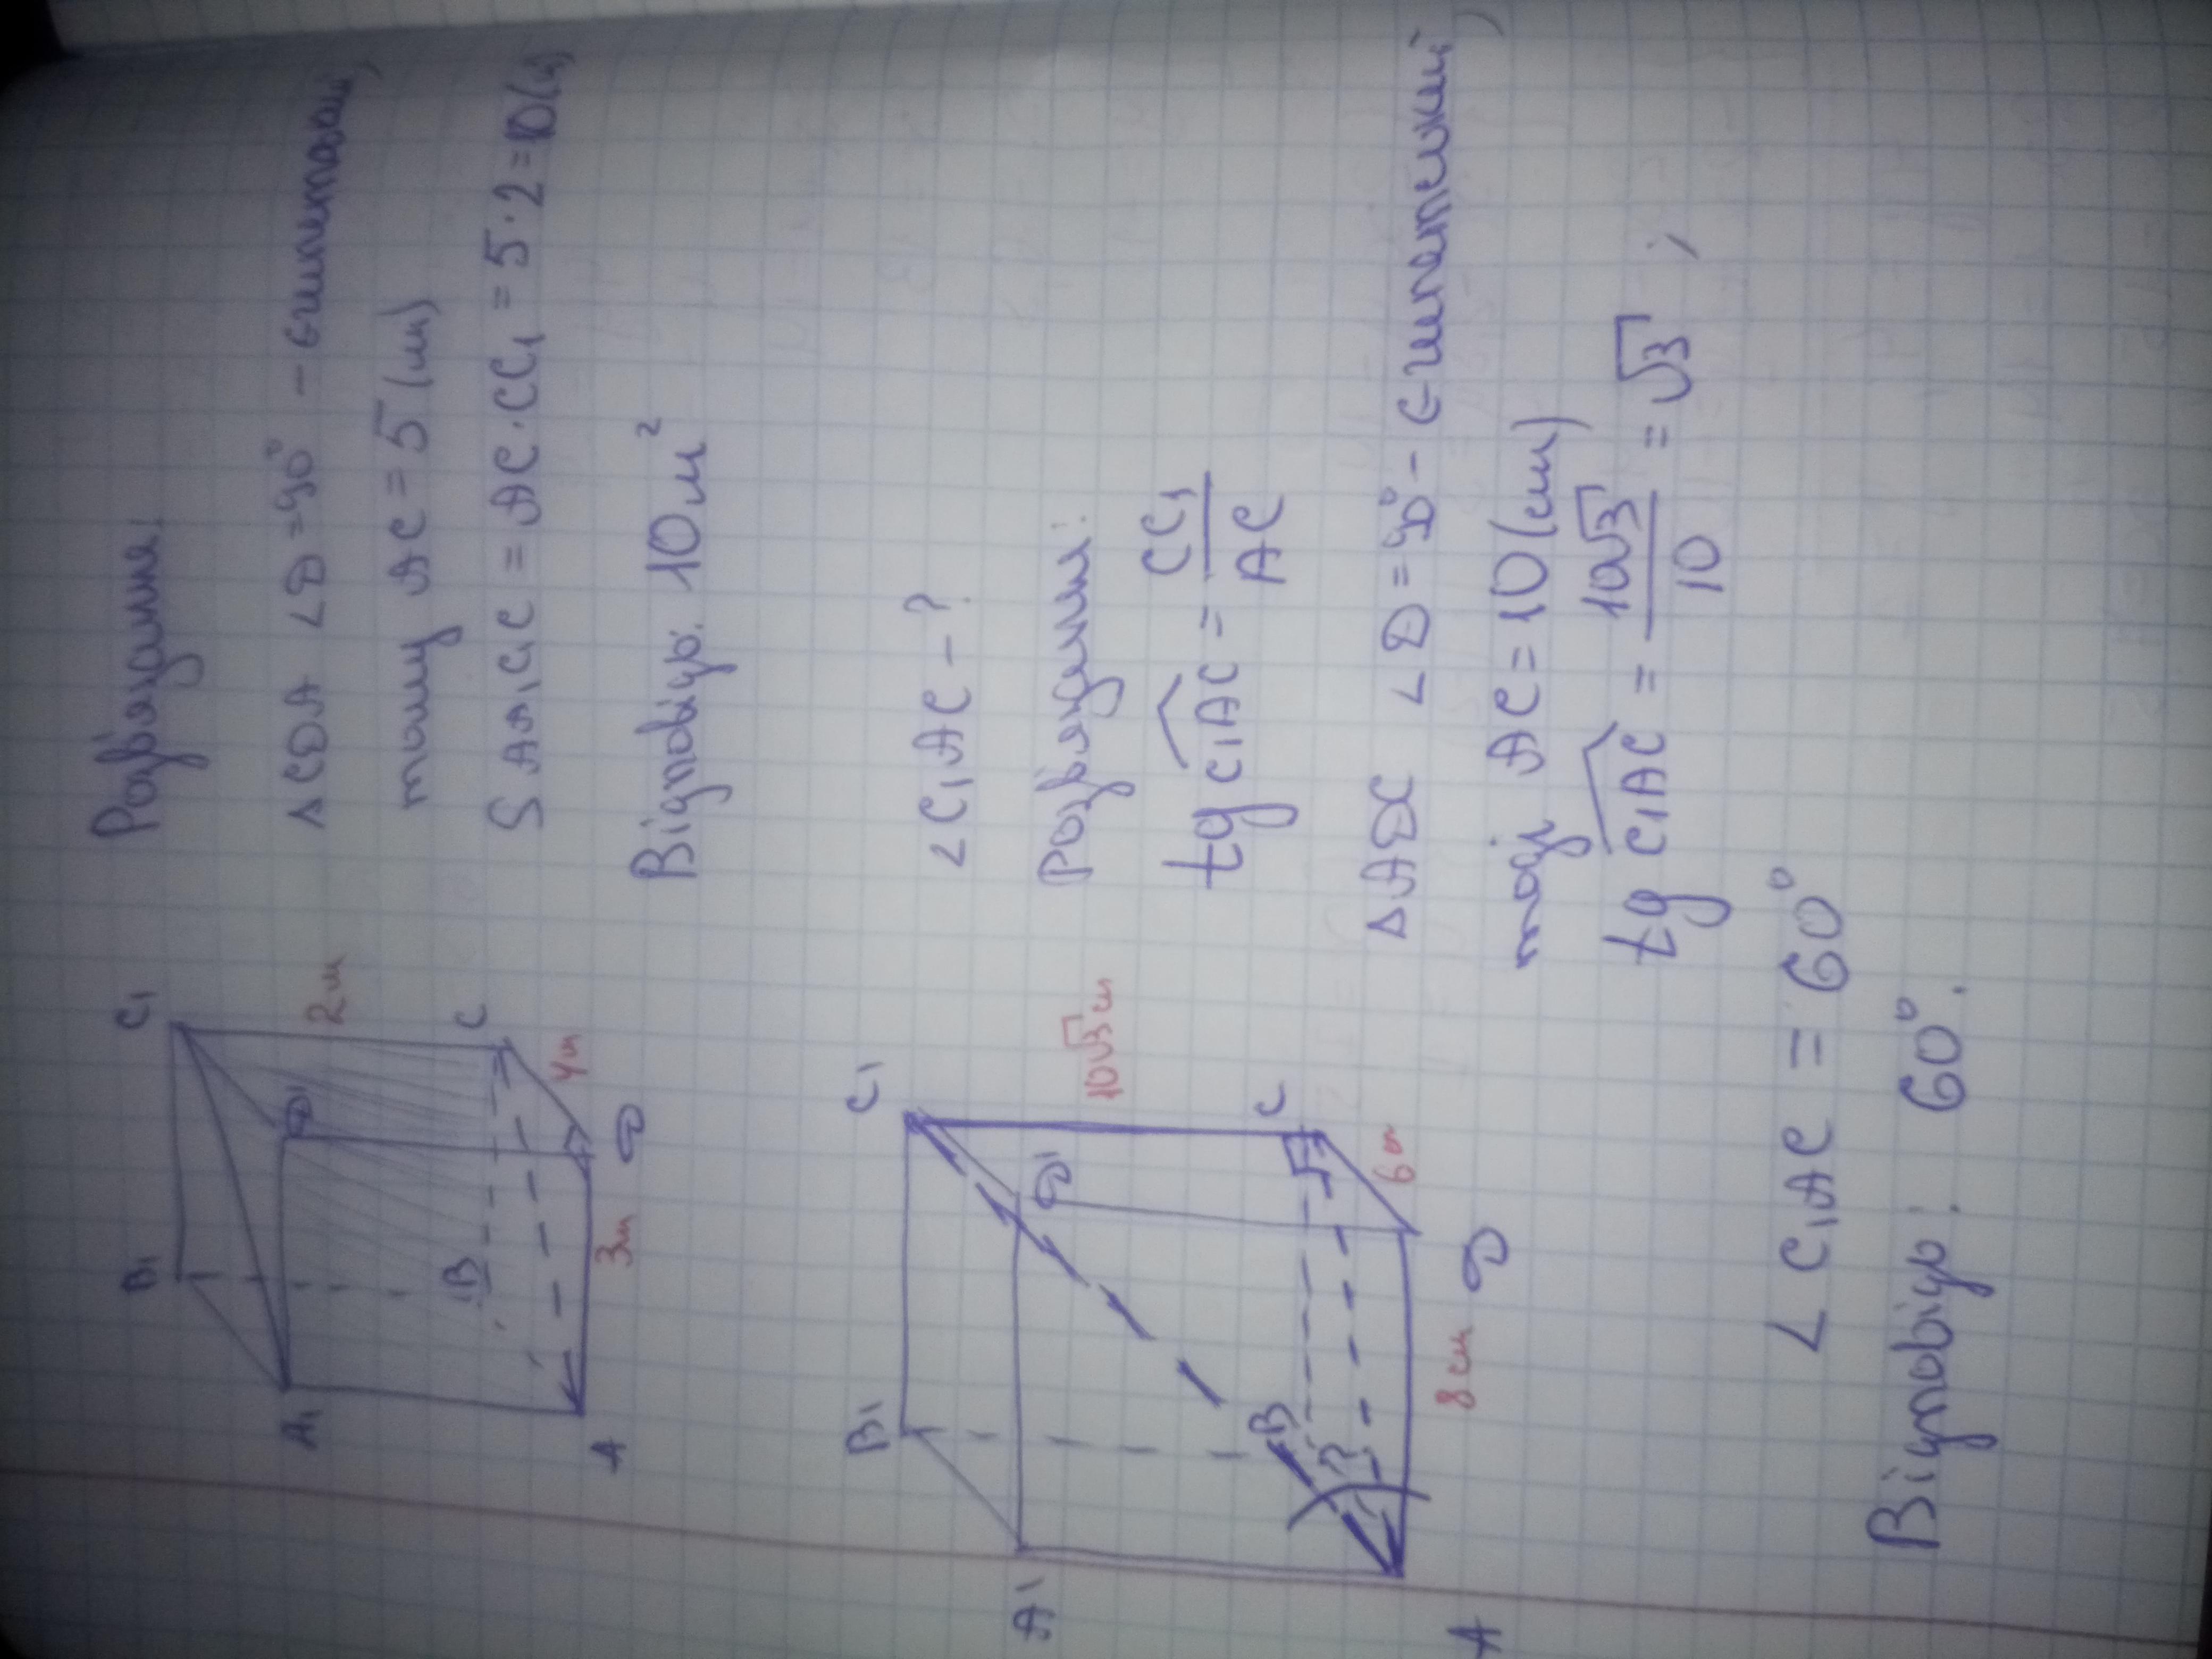 Розв'язання:
B₁
C₁
A₁
D₁
2м
B
C
4м
3м
A
D
ΔCDA ∠D=90° - єгипетський,
тому AC = 5 (м)
S AA₁C₁C = AC·CC₁ = 5·2=10(м²)
Відповідь: 10м²
B₁
C₁
A₁
D₁
10√3 см
B
C
?
6см
8 см
A
D
∠C₁AC - ?
Розв'язання:
tg C₁AC = CC₁ / AC
ΔADC ∠D=90° - єгипетський,
тоді AC = 10 (см)
tg C₁AC = 10√3 / 10 = √3 ;
∠ C₁AC = 60°
Відповідь: 60°.